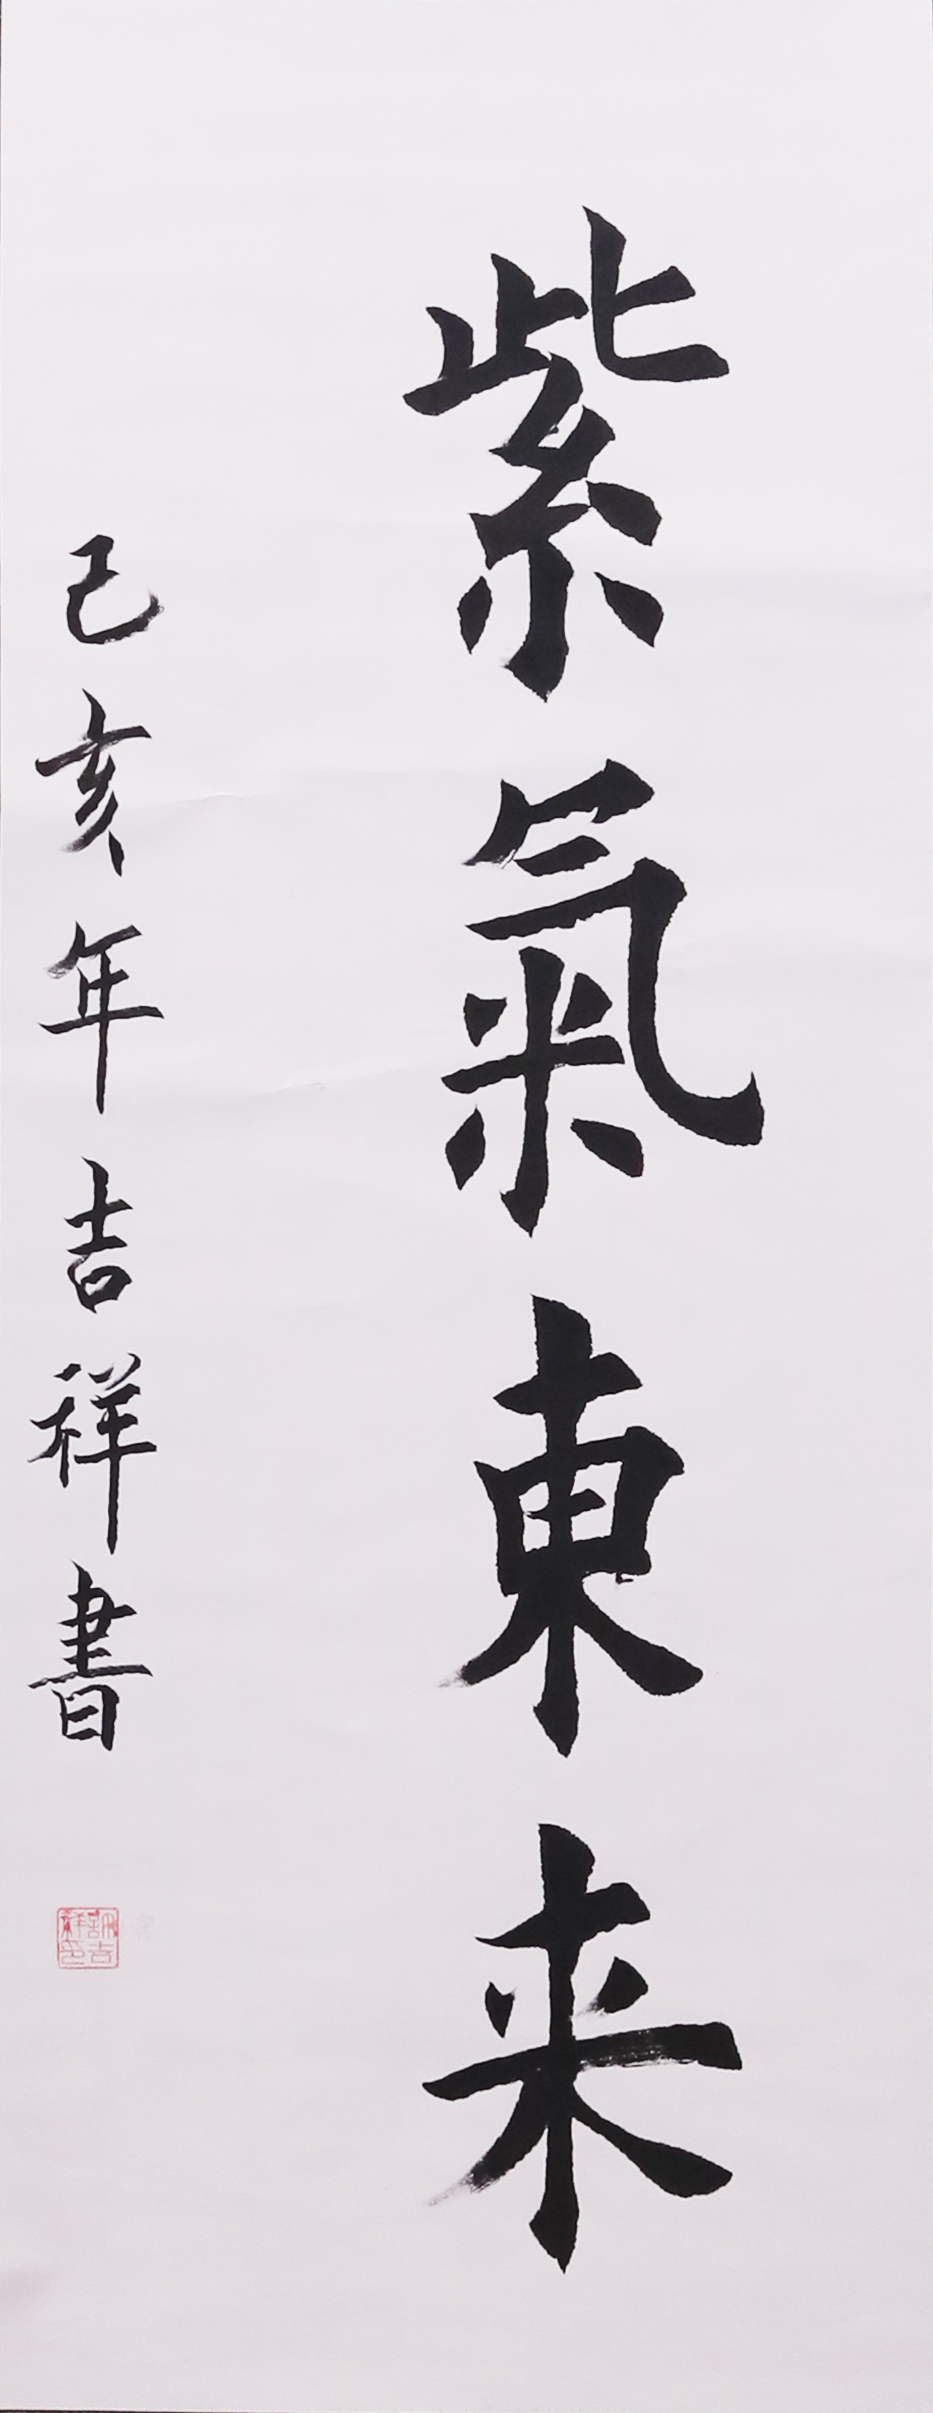 紫氣東来
己亥年吉祥書